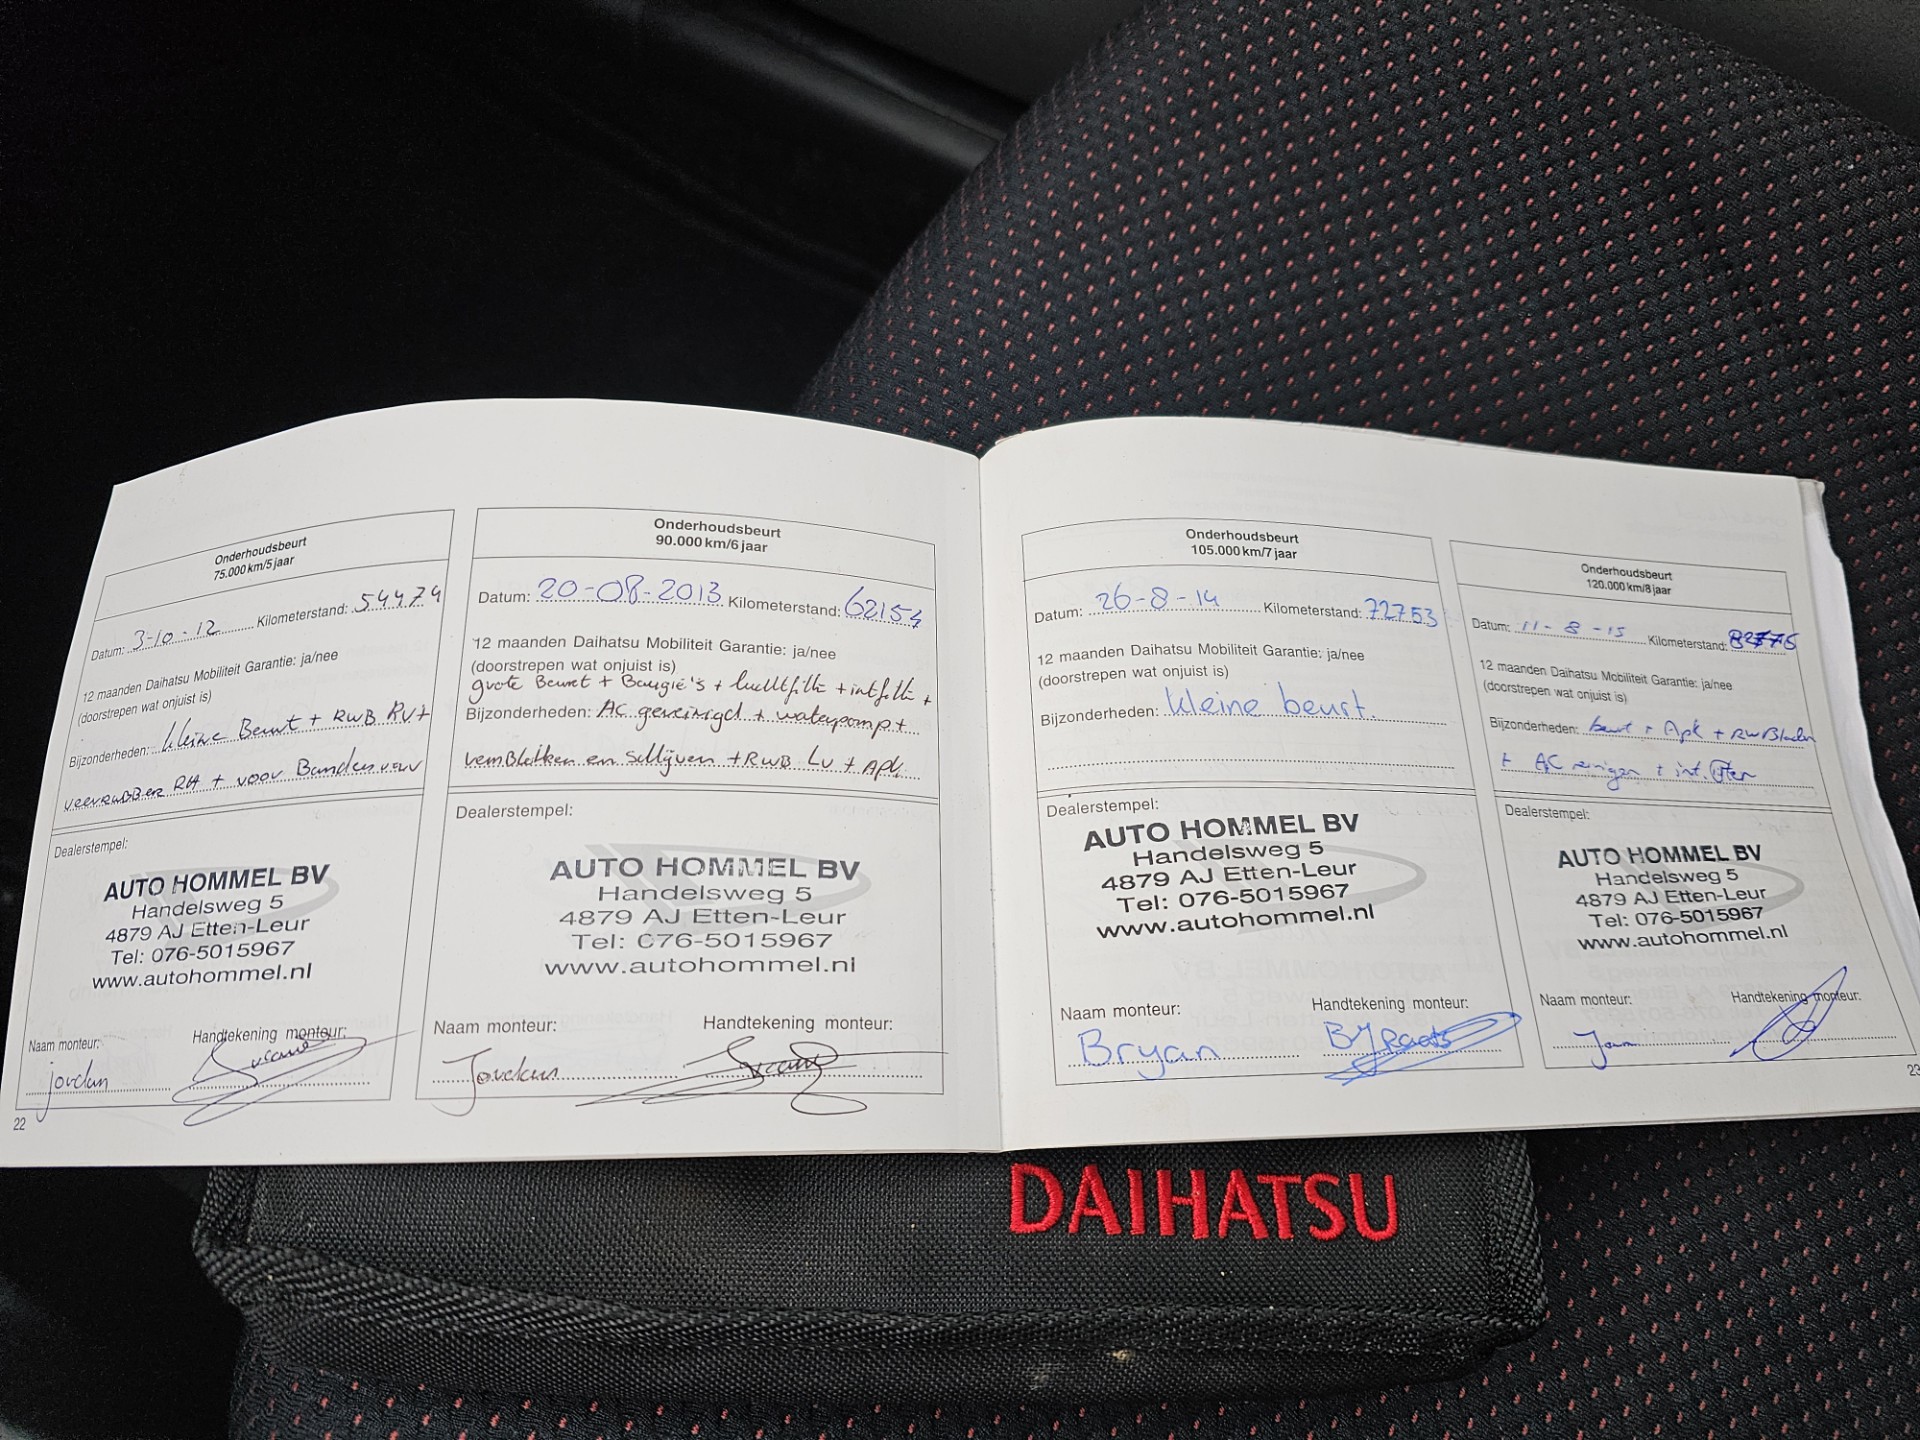 Onderhoudsbeurt
75.000 km/5 jaar
Datum: 3-10-12 Kilometerstand: 54474
12 maanden Daihatsu Mobiliteit Garantie: ja/nee
(doorstrepen wat onjuist is)
Bijzonderheden: kleine Beurt + RWB RV+
veerrubber RA + voor Banden
Dealerstempel:
AUTO HOMMEL BV
Handelsweg 5
4879 AJ Etten-Leur
Tel: 076-5015967
www.autohommel.nl
Naam monteur: Handtekening monteur:
jordan
22
Onderhoudsbeurt
90.000 km/6 jaar
Datum: 20-08-2013 Kilometerstand: 62154
12 maanden Daihatsu Mobiliteit Garantie: ja/nee
(doorstrepen wat onjuist is)
grote Beurt + Bougie's + luchtfilter + intfilter +
Bijzonderheden: AC gereinigd + waterpomp +
remblokken en schijven + RWB LV + Apk
Dealerstempel:
AUTO HOMMEL BV
Handelsweg 5
4879 AJ Etten-Leur
Tel: 076-5015967
www.autohommel.nl
Naam monteur: Handtekening monteur:
Jordan
Onderhoudsbeurt
105.000 km/7 jaar
Datum: 26-8-14 Kilometerstand: 72753
12 maanden Daihatsu Mobiliteit Garantie: ja/nee
(doorstrepen wat onjuist is)
Bijzonderheden: kleine beurt.
Dealerstempel:
AUTO HOMMEL BV
Handelsweg 5
4879 AJ Etten-Leur
Tel: 076-5015967
www.autohommel.nl
Naam monteur: Handtekening monteur:
Bryan BJ Raats
Onderhoudsbeurt
120.000 km/8 jaar
Datum: 11-8-15 Kilometerstand:
12 maanden Daihatsu Mobiliteit Garantie: ja/nee
(doorstrepen wat onjuist is)
Bijzonderheden: beurt + Apk + RWBladen
+ AC reinigen + int. filter
Dealerstempel:
AUTO HOMMEL BV
Handelsweg 5
4879 AJ Etten-Leur
Tel: 076-5015967
www.autohommel.nl
Naam monteur: Handtekening monteur:
23
DAIHATSU